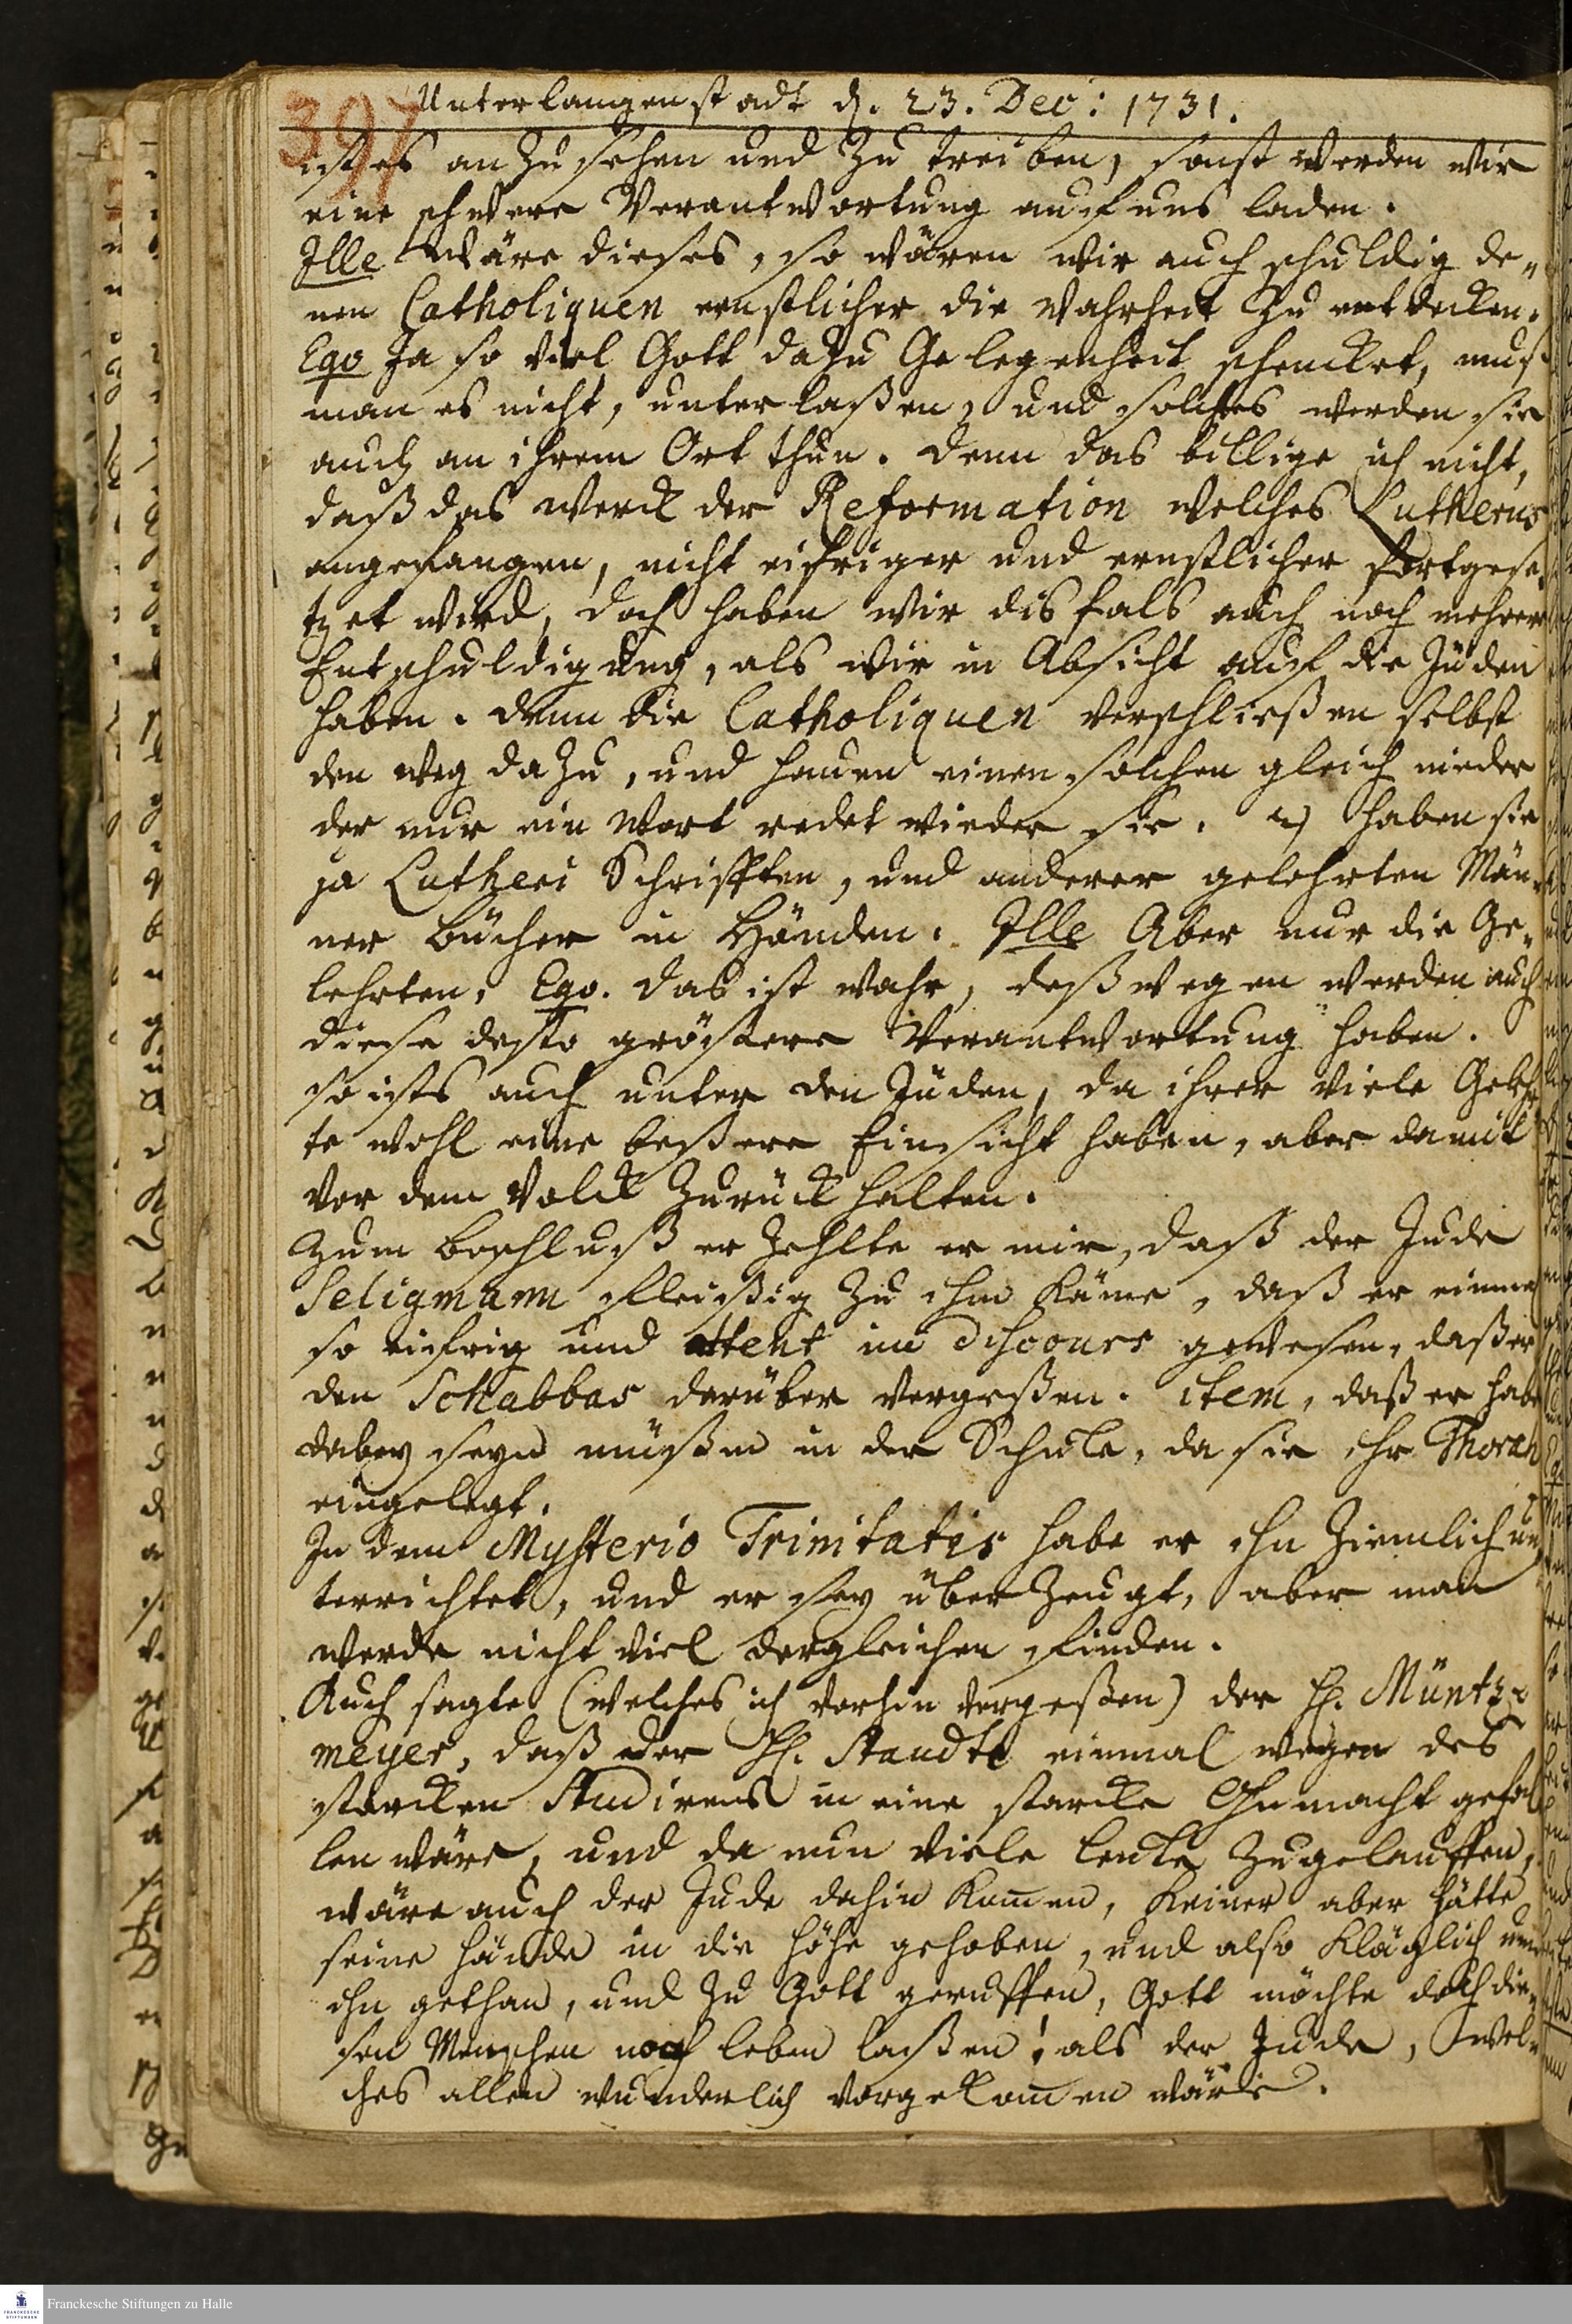 397
Unterlangenstadt d. 23. Dec: 1731.
ist es anzusehen und zu treiben, sonst werden wir
eine schwere Verantwortung auf uns laden.
Ille Wäre dieses, so wären wir auch schuldig de„
nen Catholiquen ernstlicher die Wahrheit zu entdecken.
Ego Ja so viel Gott dazu Gelegenheit schencket, muß
man es nicht, unterlaßen, und solches werden sie
auch an ihrem Ort thun. Denn das billige ich nicht,
daß das Werck der Reformation welches Lutherus
angefangen, nicht eifriger und ernstlicher fortgese„
tzet wird, doch haben wir disfals auch noch mehrere
Entschuldigung, als wir in Absicht auf die Juden
haben. Denn die Catholiquen verschließen selbst
den Weg dazu, und hauen einen solchen gleich nieder
der nur ein Wort redet wieder sie. 2) haben sie
ja Lutheri Schrifften, und anderer gelehrten Män„
ner Bücher in Händen. Ille Aber nur die Ge„
lehrten, Ego. das ist wahr, deßwegen werden auch
diese desto grössere Verantwortung haben.
so ists auch unter den Juden, da ihrer viele Gelehr
te wohl eine beßere Einsicht haben, aber damit
vor dem Volck zurück halten.
Zum Beschluß erzehlte er mir, daß der Jude
Seligmann fleißig zu ihm käme, daß er einmal
so eifrig und attent im discours gewesen, daß er
den Schabbas darüber vergeßen. item, daß er habe
dabey seyn müßen in der Schule, da sie ihr Thorah
eingelegt.
In dem Mysterio Trinitatis habe er ihn ziemlich un„
terrichtet, und er sey überzeugt, aber man
werde nicht viel dergleichen finden.
Auch sagte (welches ich vorhin vergeßen) der H. Müntz„
meyer, daß der H. Staudte einmal wegen des
starcken Studirens in eine starcke Ohnmacht gefal
len wäre, und da nun viele Leute zugelauffen,
wäre auch der Jude dahin kom̅en, keiner aber hätte
seine Hände in die Höhe gehoben, und also kläglich um
ihn gethan, und zu Gott geruffen, Gott möchte doch die„
sen Menschen noch leben laßen! als der Jude, wel„
ches allen wunderlich vorgekom̅en wäre.
Franckesche Stiftungen zu Halle